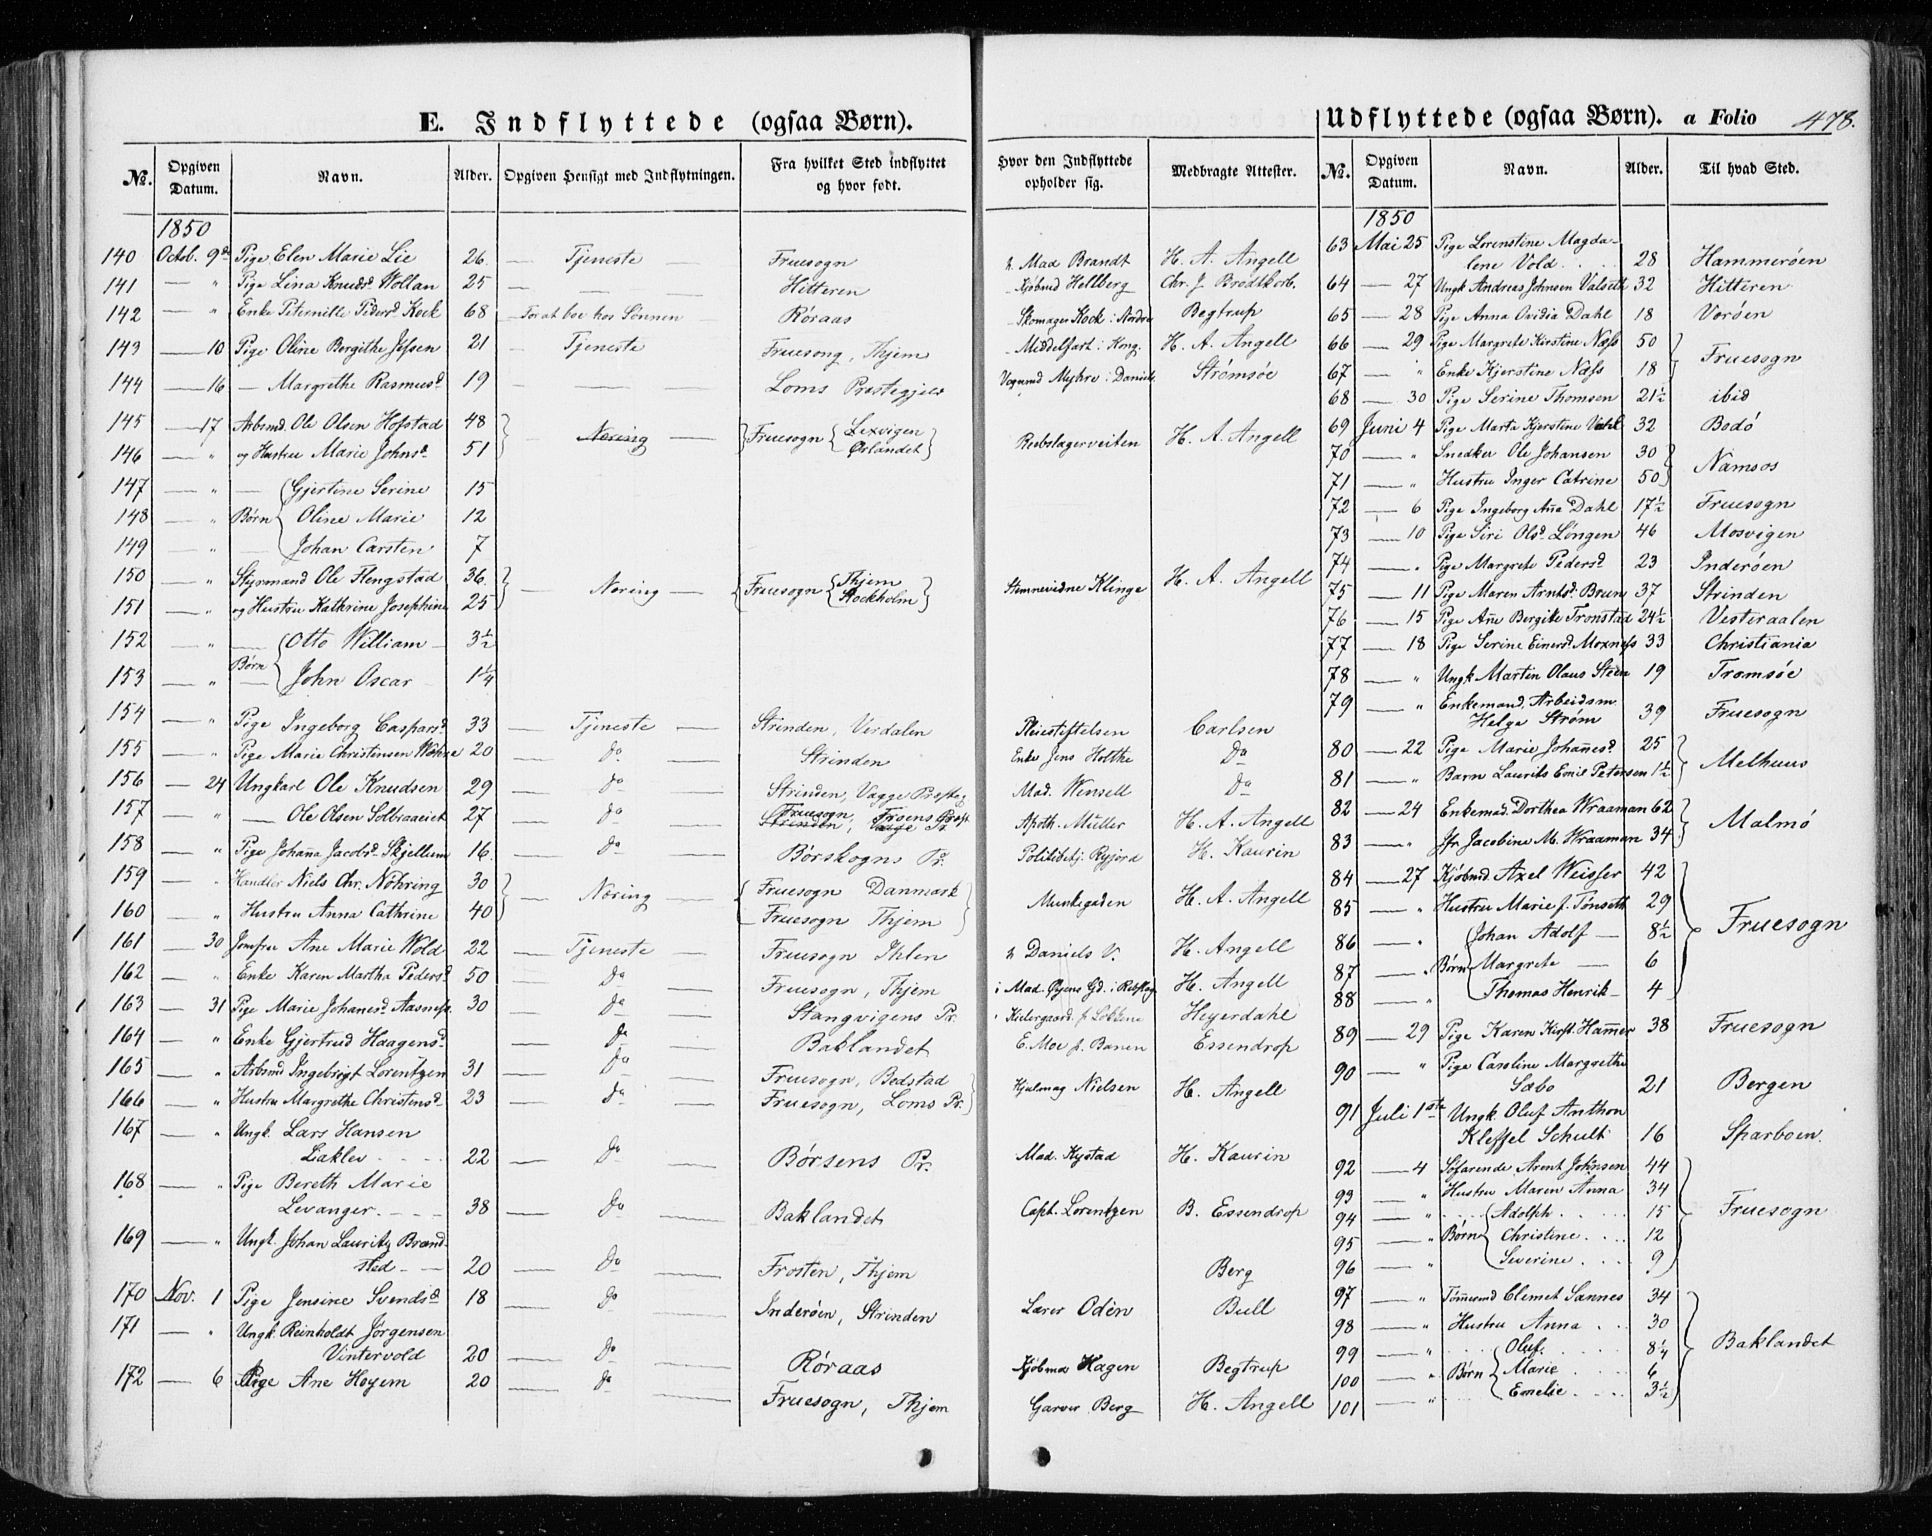 E. Indflyttede (ogsaa Børn).
Udflyttede (ogsaa Børn). a Folio 478.
No. Opgiven Datum. Navn. Alder. Opgiven Hensigt med Indflytningen. Fra hvilket Sted indflyttet og hvor født. Hvor den Indflyttede opholder sig. Medbragte Attester.
1850
140 Octob. 9de Pige Elen Marie Lie 26. — Tjeneste — Fruesogn Mad Brandt H. A. Angell
141 — " Pige Lina Knudsd. Wollan 25 — — — Hitteren Kjøbmd Hellberg Chr. J. Brodtkorb.
142 — " Enke Peternille Pedersd. Kock 68 — For at boe hos Sønnen — Røraas Skomager Kock i Nordre Begtrup
143 — 10 Pige Oline Bergithe Jessen 21 — Tjeneste — Fruesong, Thjem Middelfart i Kong. H. A. Angell
144 — 16 — Margrethe Rasmusd. 19 — — Loms Prestegjeld Vognmd Myhre i Daniels. Strømsøe
145 — 17 Arbmd. Ole Olsen Hofstad 48 — Næring — Fruesogn Lexvigen Rebslagerveiten H. A. Angell
146 — " og Hustru Marie Johnsd. 51 Ørlandet
147 — " — Gjertine Serine 15
148 — " Børn Oline Marie 12
149 — " — Johan Carsten 7
150 — " Styrmand Ole Flengstad 36. — Næring — Fruesogn Thjem Klinge H. A. Angell
151 — " og Hustru Kathrine Josephine 25 Stockholm
152 — " — Otto William — 3½
153 — " Børn John Oscar 1¼
154 — " Pige Ingeborg Caspersd. 33 — Tjeneste — Strinden, Verdalen Pleiestiftelsen Carlsen
155 — " Pige Marie Christinsen 20 — Do — Strinden Enke Jens Holthe Do
156 — 24 Ungkarl Ole Knudsen 29 — do — Strinden, Vagge Presteg Mad. Wensell Do
157 — " — Ole Olsen Solbraaeiet 27 — do — Fruesogn, Froens Præst. Apoth. Müller H. A. Angell
Strinden, Vage Pr.
158 — " Pige Johanna Jacobsd. Skjellum 16. — do — Børskogns Pr. Politibetj. H. Kaurin
159 — " Handler Niels Chr. Nöhring 30 — Næring — Fruesogn Danmark Munkegaden H. A. Angell
160 — " Hustru Anna Cathrine 40 Fruesogn Thjem
161 — 30 Jomfrue Ane Marie Wold 22 — Tjeneste — Fruesogn Ihlen Daniels V. H. Angell
162 — " Enke Karen Martha Pedersd. 50 — Do — Fruesogn, Thjem i Mad. Øyens Gd. i Rebslag H. Angell
163 — 31 Pige Marie Johansd. Aasness 30 — Do — Stangvigens Pr. Heyerdahl
164 — " Enke Gjertrud Haagensd. Do — Baklandet E. Moe Essendrop
165 — " Arbmd Ingebrigt Lorentzen 31 — Do — Fruesogn, Bedstad Hjulmag Nielsen H. Angell
166 — " Hustru Margrethe Christensd. 23 — do — Fruesogn, Loms Pr.
167 — " Ungk. Lars Hansen
Liaklev 22 — Do — Børsens Pr. Mad. Kystad H. Kaurin
168 — " Pige Bereth Marie
Levanger. 38 — Do — Baklandet Capt. Lorentzen B. Essendrop
169 — " Ungk. Johan Lauritz Brænd-
sted 20 — Do — Frosten, Thjem Berg
170 Nov. 1 Pige Jensine Svendsd. 18 — Do — Inderøen, Strinden Lærer Odén Bull
171 — " Ungk. Reinholdt Jørgensen
Vintervold 20 — Do — Røraas Kjøbmd Hagen Begtrup
172 — 6 Pige Ane Hoyem 20 — do — Fruesogn, Thjem Garver Berg H. Angell
No. Opgiven Datum. Navn. Alder. Til hvad Sted.
1850
63 Mai 25 Pige Lorenstine Magda-
lene Vold. 28 Hammerøen
64 — 27 Ungk Andreas Johnsen Valseth 32 Hitteren
65 — 28 Pige Anna Ovidia Dahl 18 Vorøen
66 — 29 Pige Margrete Kirstine Næss 50 Fruesogn
67 — " Enke Kjerstine Næss 18
68 — 30 Pige Serine Thomsen 21½ ibid
69 Juni 4 Pige Marta Kjerstine 32 Bodø
70 — " Snedker Ole Johansen 30 Namsos
71 — " Hustru Inger Catrine 50
72 — 6 Pige Ingeborg Aña Dahl 17½ Fruesogn
73 — 10 Pige Siri Olsd. Löngen 46 Mosvigen
74 — " Pige Margrete Pedersd. 23 Inderøen
75 — 11 Pige Maren Arntsd. Bruun 37 Strinden
76 — 15 Pige Añe Bergite Tronstad 24½ Vesteraalen
77 — 18 Pige Serine Einersd. Moxness 33 Christiania
78 — " Ungk Martin Olaus Steen 19 Tromsøe
79 — " Enkemand, Arbeidsm.
Helge Strøm 39 Fruesogn
80 — 22 Pige Marie Johañesd. 25 Melhuus
81 — " Barn Laurits Emil Petersen 1½
82 — 24 Enkemad. Dorthea Wraaman 62 Malmø
83 — " Jfr Jacobine M. Wraaman 34
84 — 27 Kjøbmd. Axel Weisser 42 Fruesogn
85 — " Hustru Marie f. Tønseth 29
86 — " Johan Adolf — 8½
87 — " Børn Margrete — 6
88 — " Thomas Henrik — 4
89 — 29 Pige Karen Kirst. Hamer 38 Fruesogn
90 — " Pige Caroline Margrethe
Sæbo 21 Bergen
91 Juli 1ste Ungk. Oluf Anthon
Kleffel Schult 16 Sparboen.
92 — 4 Søfarende Arent Johnsen 44 Fruesogn
93 — " Hustru Maren Anna 34
94 — " Adolph. 15
95 — " Børn Christine. 12
96 — " Severine. 9
97 — " Tømmermd Clemet Sannes 34 Baklandet
98 — " Hustru Anna 30
99 — " Oluf. 8¼
100 — " Børn Marie 6
101 — " Emelie. 3½